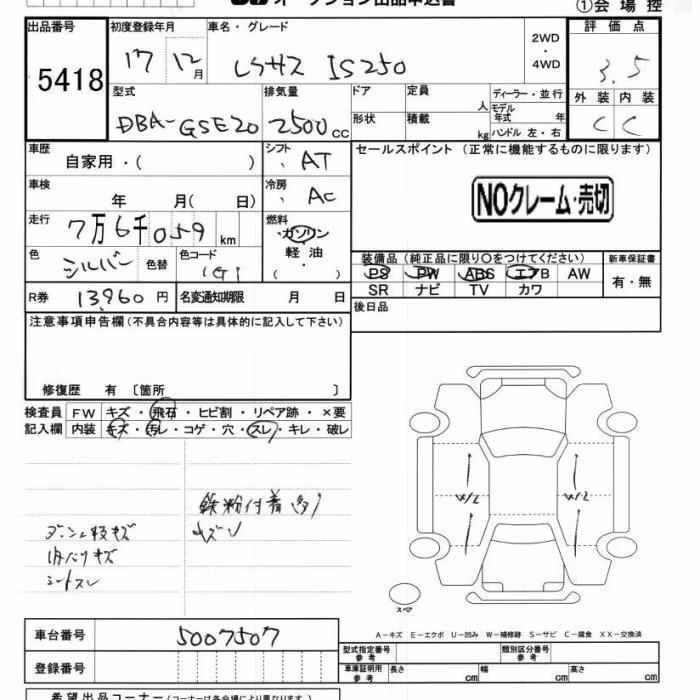 オークション出品申込書
①会場控
出品番号 初度登録年月 車名・グレード 評価点
5418 17 12月 レクサス IS250 2WD・4WD 3.5
型式 排気量 ドア 定員 人 ディーラー・並行 外装 内装
DBA-GSE20 2500cc 形状 積載 kg モデル年式 年 ハンドル 左・右 C C
車歴 自家用・( ) シフト AT セールスポイント (正常に機能するものに限ります)
車検 年 月( 日) 冷房 AC NOクレーム・売切
走行 7万6千059km 燃料 ガソリン・軽油・( )
色 シルバー 色替 色コード 1G1
装備品 (純正品に限り○をつけてください) 新車保証書
PS PW ABS エアB AW 有・無
SR ナビ TV カワ
R券 13,960円 名変通知期限 月 日 後日品
注意事項申告欄 (不具合内容等は具体的に記入して下さい)
修復歴 有 〔箇所 〕
検査員 FW キズ・飛石・ヒビ割・リペア跡・×要
記入欄 内装 キズ・汚レ・コゲ・穴・スレ・キレ・破レ
鉄粉付着(多)
キズU
キズ
内バリキズ
シートスレ
W/2 W/2
スペア
A-キズ E-エクボ U-凹み W-補修跡 S-サビ C-腐食 XX-交換済
車台番号 5007507
型式指定番号 参考 類別区分番号 参考
登録番号 車庫証明用 参考 長さ cm 幅 cm 高さ cm
希望出品コーナー (コーナーは各会場により異なります。)